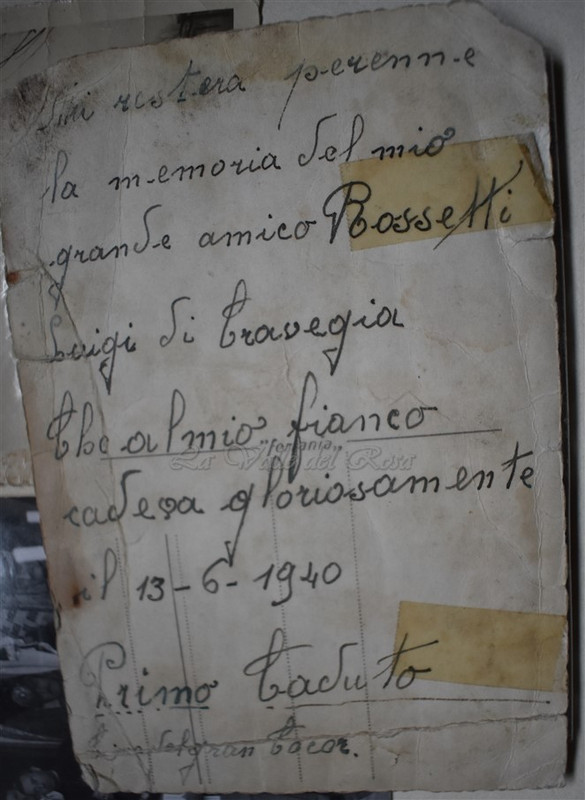 restera perenne
la memoria del mio
grande amico Rossetti
Luigi di Travegia
Che al mio fianco
"ferrania"
La Valle del Rosa
cadeva gloriosamente
il 13-6-1940
Primo Caduto
del gran Cocor.